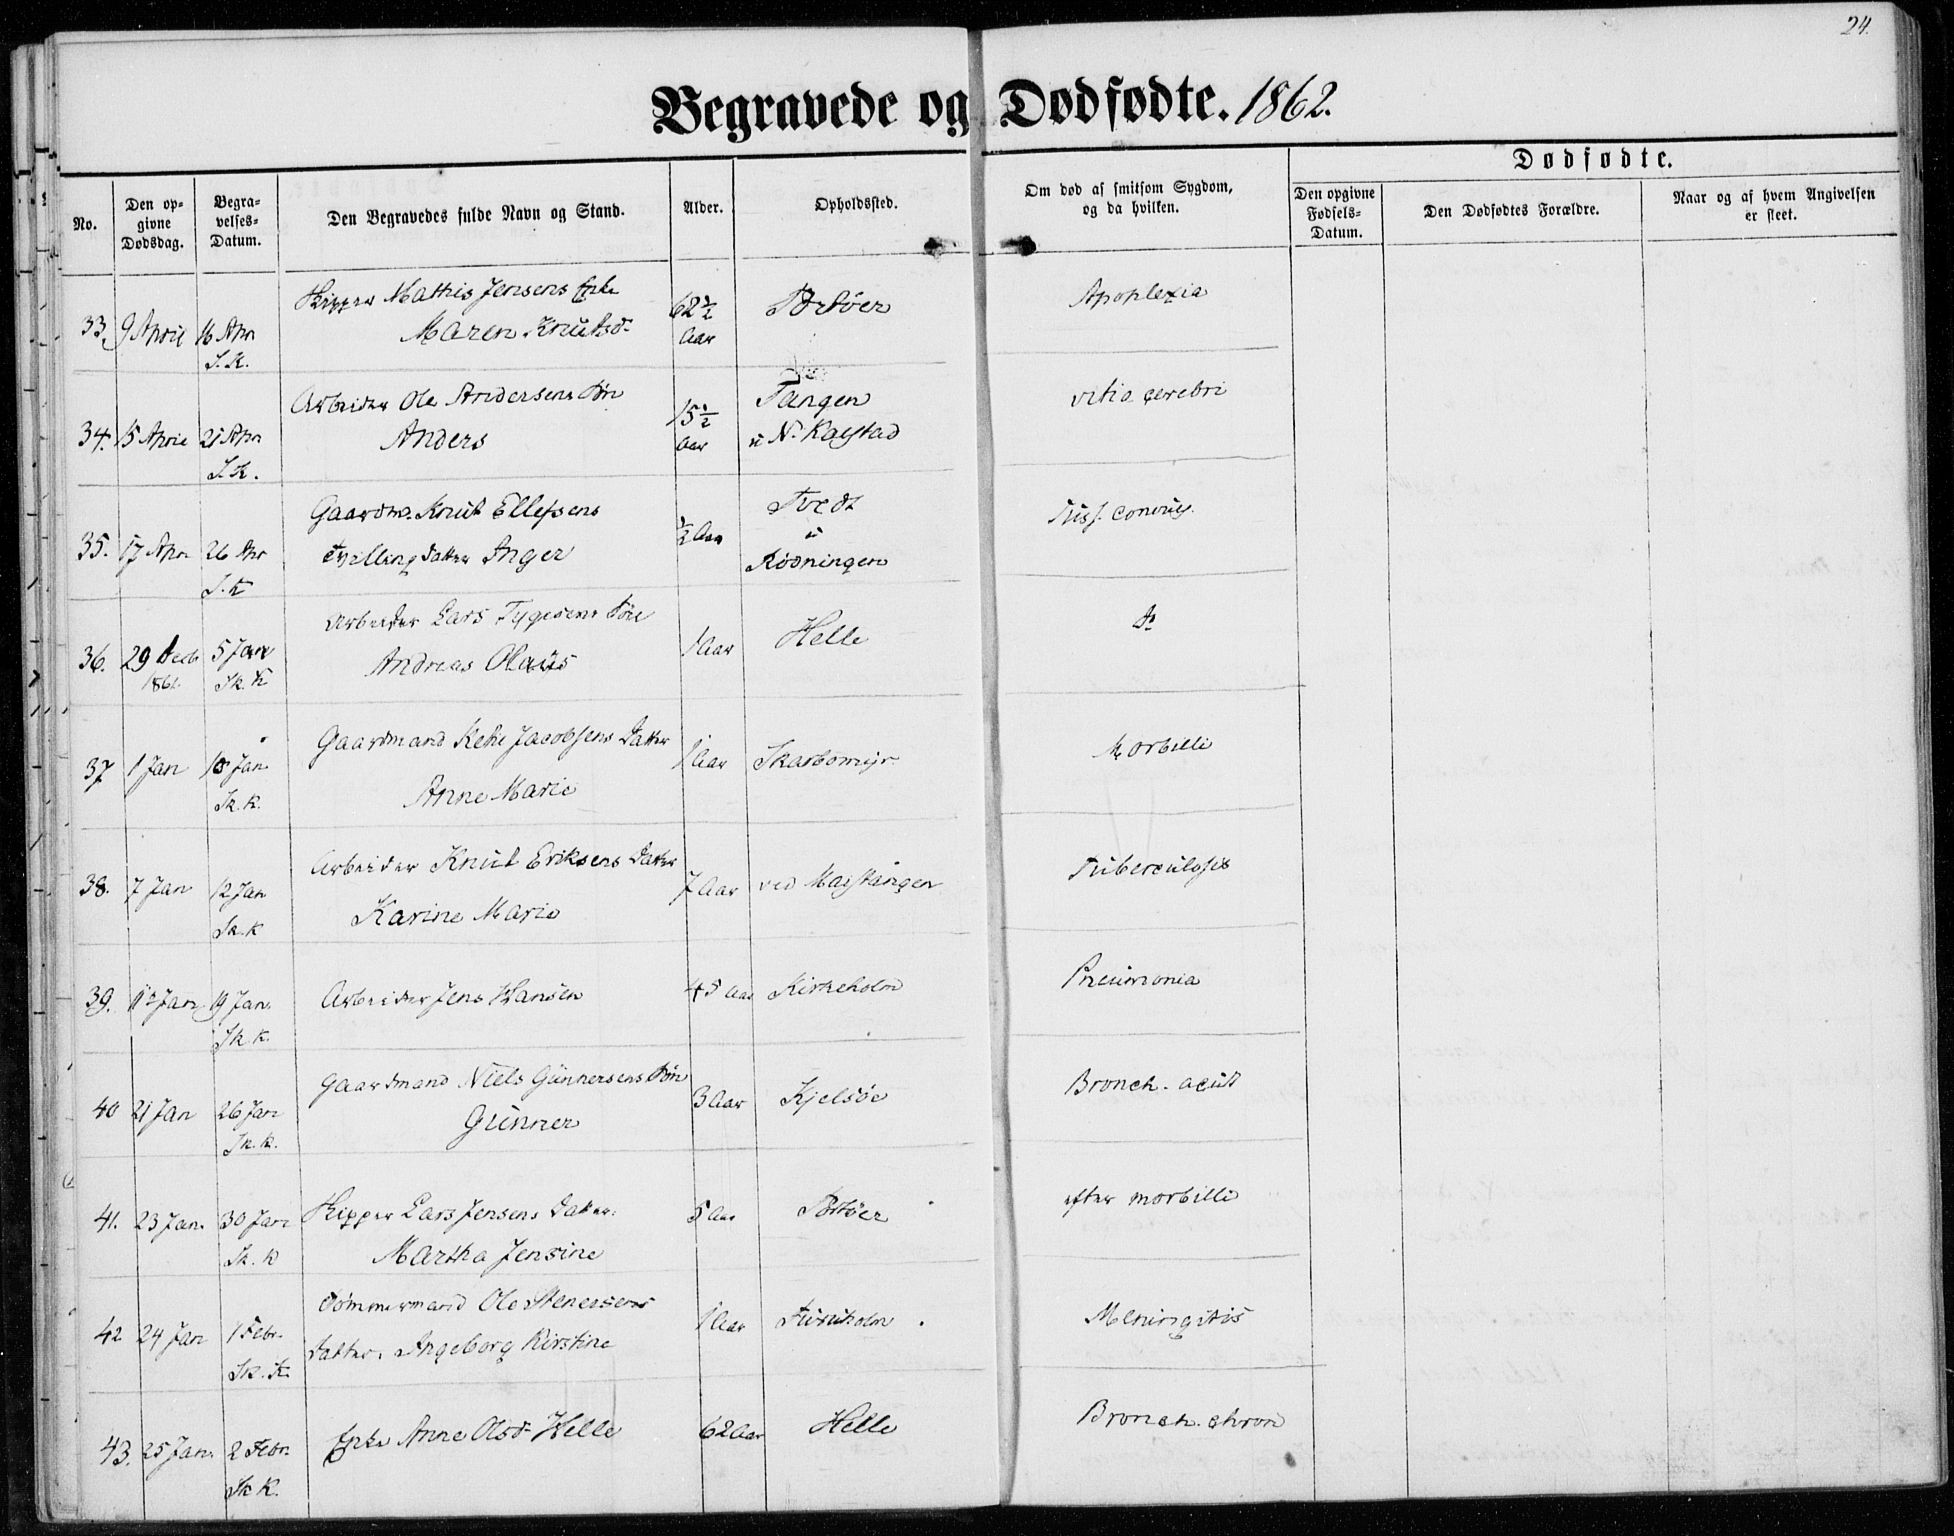 24.
Begravede og Dødfødte. 1862.
No. | Den opgivne Dødsdag. | Begravelses-Datum. | Den Begravedes fulde Navn og Stand. | Alder. | Opholdssted. | Om død af smitsom Sygdom, og da hvilken. | Dødfødte. | Den opgivne Fødsels-Datum. | Den Dødfødtes Forældre. | Naar og af hvem Angivelsen er skeet.
33. | 9 April | 16 Apr S.K. | Skipper Mathis Jensens Enke Maren Knutsd. | 62 1/2 Aar | Portøer | Apoplexia
34. | 15 April | 21 Apr S.K. | Arbeider Ole Andersens Søn Anders | 15 1/2 Aar | Tangen u N. Kalstad | vitio cerebri
35. | 17 Apr | 26 Apr S.K | Gaardm. Knut Ellefsens tvilling datter Inger | 1/2 Aar | Tvedt u Rødningen | Tuss. convuls.
36. | 29 Decb 1861. | 5 Janr Sk.K | Arbeider Lars Tygesens Søn Andreas Olaüs | 1 Aar | Helle | do
37 | 1 Jan | 10 Jan Sk.K. | Gaardmand Jacobsens Datter Anne Marie | 1 Aar | Skarbomyr | Morbilli
38. | 7 Jan | 12 Jan Sk.K | Arbeider Knut Eriksens Datter Karine Marie | 7 Aar | ved | Tuberculosis
39. | Jan | 19 Jan. Sk.K. | Arbeider Jens Hansen | 45 Aar | Kirkeholm | Pneumonia
40 | 21 Jan | 26 Jan Sk.K. | Gaardmand Niels Günnersens Søn Günner | 3 Aar | Kjelsøe | Bronch. acut
41. | 23 Jan. | 30 Jan Sk.K | Skipper Lars Jensens Datter Martha Jensine | 5 Aar | Portøer | efter morbilli
42 | 24 Jan | 1 Febr. Sk.K. | Tømmermand Ole Stenersens Datter Ingeborg Kirstine | 1 Aar | Furuholm | Meningitis
43. | 25 Jan. | 2 Febr. Sk K. | Enke Anne Olsd. Helle | 62 Aar | Helle | Bronch. chron